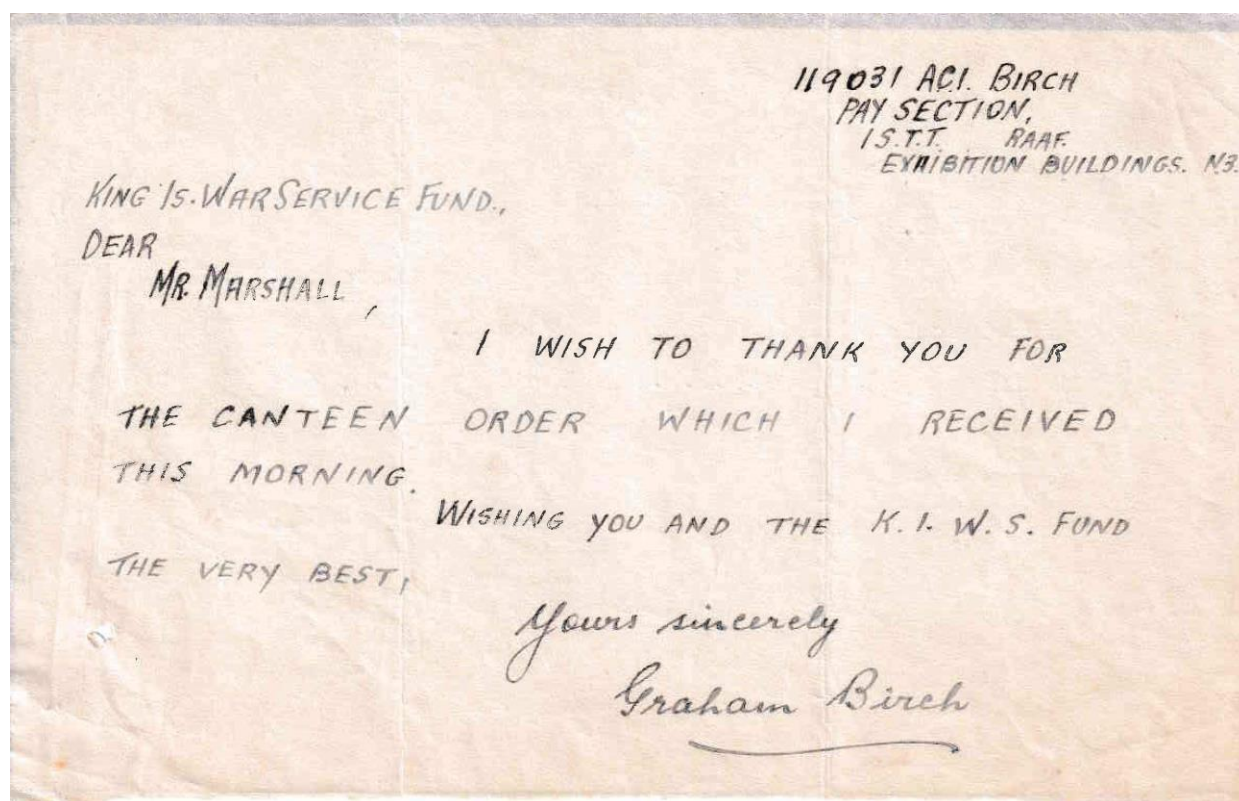 119031 AC1. BIRCH
PAY SECTION,
1 S.T.T. RAAF.
EXHIBITION BUILDINGS. N3.
KING IS. WAR SERVICE FUND.,
DEAR
MR. MARSHALL,
I WISH TO THANK YOU FOR
THE CANTEEN ORDER WHICH I RECEIVED
THIS MORNING.
WISHING YOU AND THE K. I. W. S. FUND
THE VERY BEST,
Yours sincerely
Graham Birch